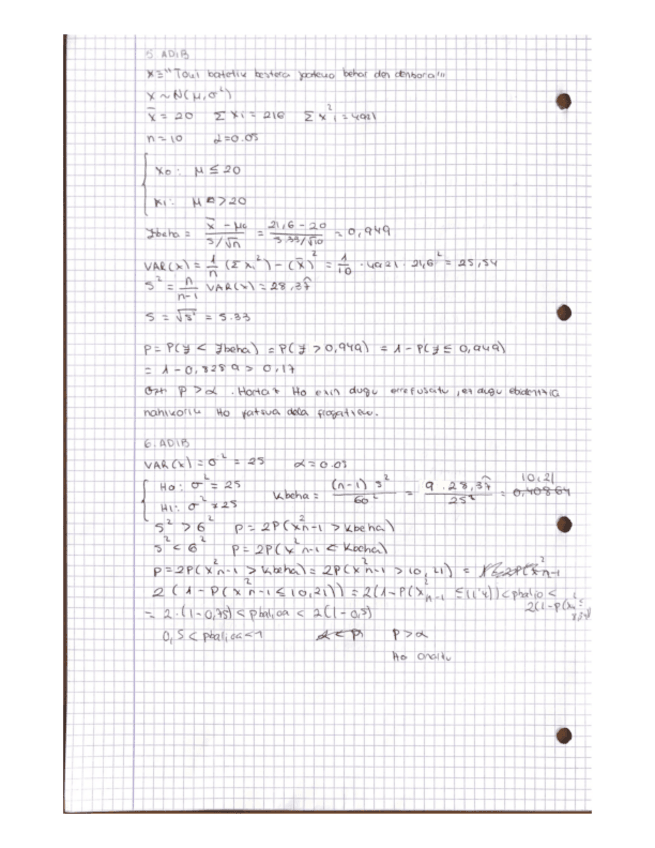 5. ADIB
X ≡ "Tout batetik bestera joateko behar den denbora"
X ~ N(μ, σ²)
x̄ = 20 Σ xi = 216 Σ x²i = 4921
n = 10 α = 0.05
X0: μ ≤ 20
X1: μ > 20
zbeha = (x̄ - μ0) / (s/√n) = (21,6 - 20) / (5.33/√10) = 0,949
VAR(X) = 1/n (Σ xi²) - (x̄)² = 1/10 · 4921 · 21,6² = 25,54
s² = n/(n-1) VAR(X) = 28,37
s = √s² = 5.33
p = P(z < zbeha) = P(z > 0,949) = 1 - P(z ≤ 0,949)
= 1 - 0,8289 > 0,17
p > α. Hortaz Ho ezin dugu errefusatu, ez dugu ebidentzia
nahikorik Ho faltsua dela frogatzeko.
6. ADIB
VAR(X) = σ² = 25 α = 0.05
Ho: σ² = 25
H1: σ² ≠ 25
kbeha = (n-1) s² / 60² = 9 · 28,37 / 25² = 10,21
s² > 6² p = 2P(x²n-1 > kbeha)
s² < 6² p = 2P(x²n-1 < kbeha)
p = 2P(x²n-1 > kbeha) = 2P(x²n-1 > 10,21) =
2(1 - P(x²n-1 ≤ 10,21)) = 2(1 - P(x²n-1 ≤ 11'4)) < pbalio <
= 2·(1 - 0,75) < pbalioa < 2(1 - 0,5)
0,5 < pbalioa < 1 p > α
Ho onartu